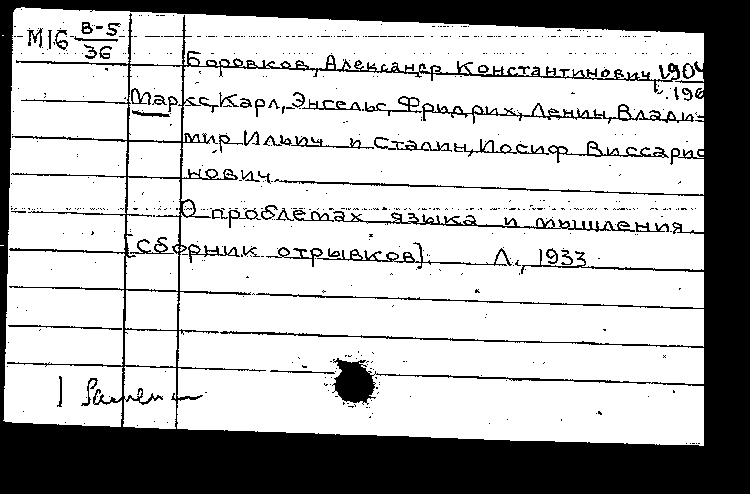 М16 В-5
36
Боровков, Александр Константинович, 1904
Маркс, Карл, Энгельс, Фридрих, Ленин, Влади-
мир Ильич и Сталин, Иосиф Виссарио
нович
О проблемах языка и мышления
[сборник отрывков]. Л., 1933